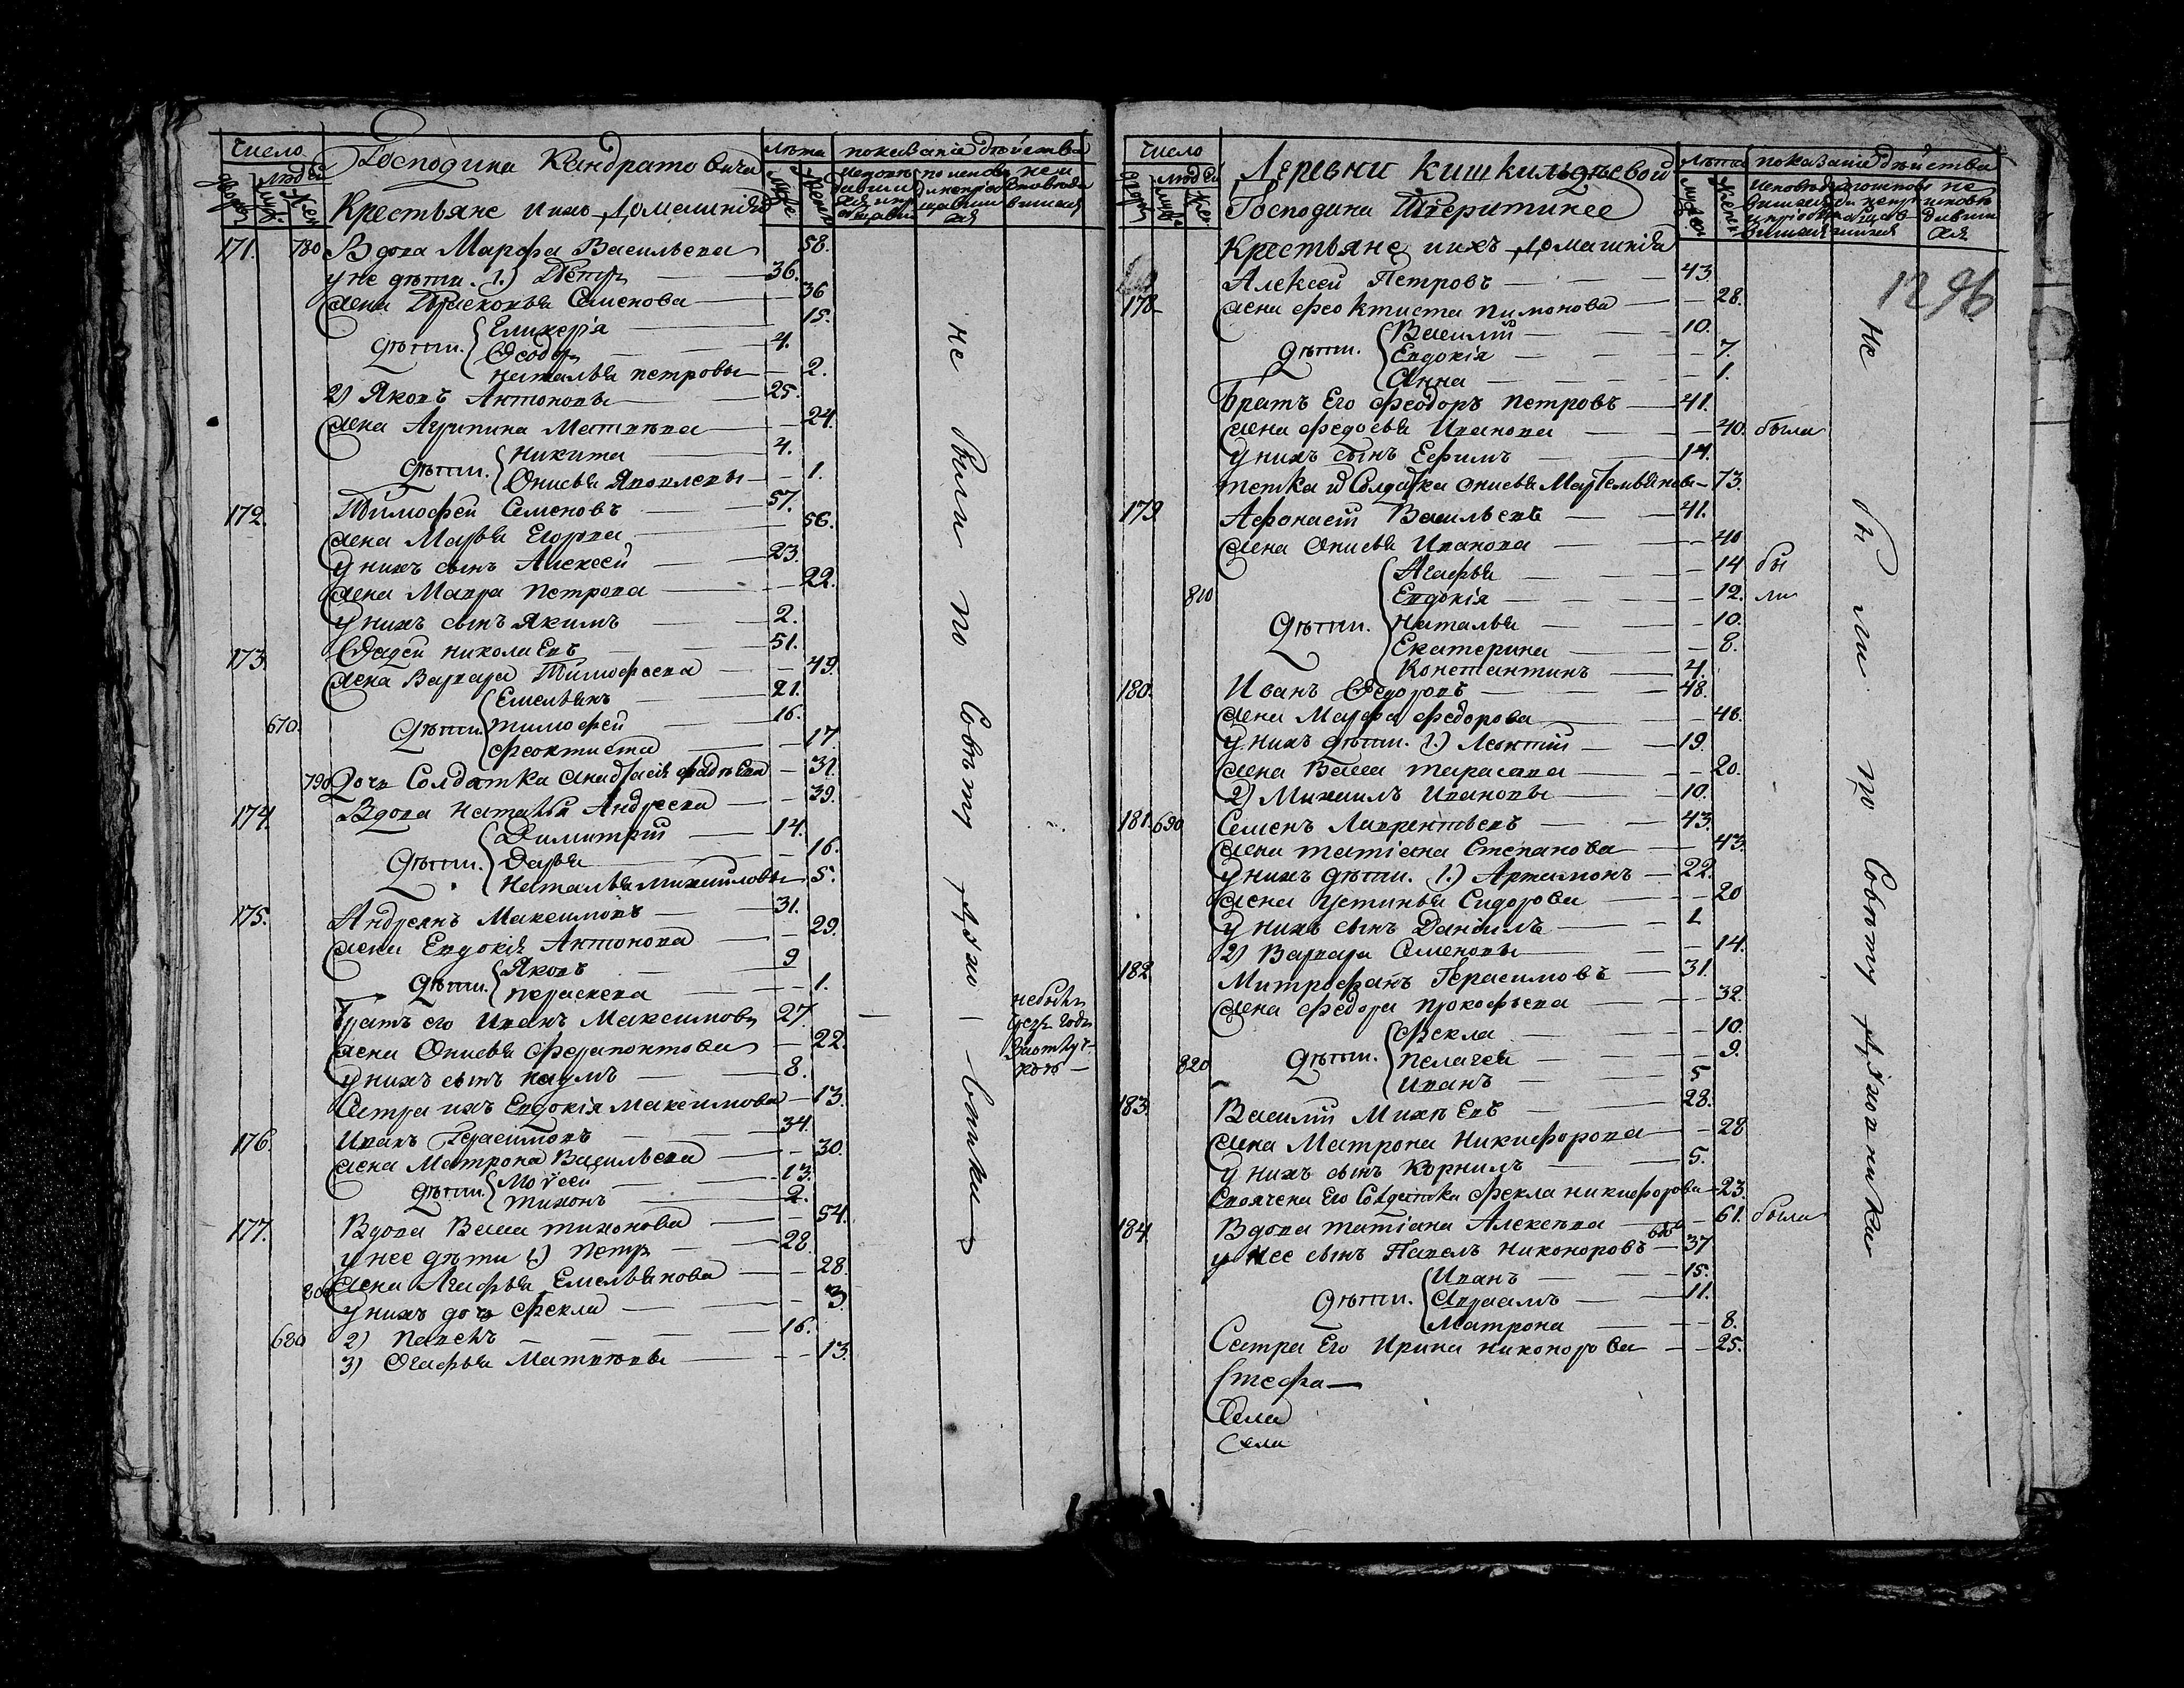 Число
Людей
Господина Кандратовича
Лѣта
показаніе дѣйства
Крестьяне ихъ домашнія
171. 780 Вдова Марфа Васильева 58.
у не дѣти. 1.) Петръ 36.
жена Прасковья Семенова 36
15.
дѣти. Ѳеодоръ 4.
Наталья Петровы 2.
2) Яковъ Антоновы 25.
жена Агрипина Матвѣева 24.
Никита 4.
дѣти. Онисья Яковлевы 1.
172. Тимофей Семеновъ 57.
жена Марья Егорова 56.
у нихъ сынъ Алексей 23.
жена Мавра Петрова 22.
у нихъ сынъ Якимъ 2.
173. Фадей Николаевъ 51.
жена Варвара Тимофеева 49.
Емельянъ 21.
670. дѣти. Тимофей 16.
Феоктиста 17.
790 Дочь Солдатка Анастасія Фадѣева 31.
174. Вдова Наталья Андреева 39.
Димитрій 14.
дѣти. Дарья 16.
Наталья Михайловы 5.
175. Андреянъ Максимовъ 31.
жена Евдокія Антонова 29.
Яковъ 9
дѣти. Параскева 1.
Братъ его Иванъ Максимовъ 27. небылъ
жена Онисья Ферапонтова 22.
у нихъ сынъ Наумъ 8.
Сестра ихъ Евдокія Максимова 13.
176. Иванъ Герасимовъ 34.
жена Матрона Васильева 30.
дѣти. Моѵсей 13.
Тихонъ 2.
177. Вдова Васса Тихонова 54.
у нее дѣти 1) Петръ 28.
800 жена Агафья Емельянова 28.
у нихъ дочь Фекла 3
680 2) Павелъ 16.
3) Агафья Матвѣевы 13.
не были по Совѣту духо вника
Число
Людей
Деревни Кишкильдѣевой
Лѣта
показаніе дѣйства
Господина
Крестьяне ихъ домашнія
1296
Алексей Петровъ 43
178 жена Феоктиста Пимонова 28.
Василій 10.
дѣти. Евдокія 7.
Анна 1.
Братъ Его Феодоръ Петровъ 41.
жена Федосья Иванова 40. была
у нихъ сынъ Ефимъ 14.
тетка Солдатка Онисья Мартемьянова 73.
179 Афонасей Васильевъ 41.
жена Онисья Иванова 40
Агафья 14 бы
810 Евдокія 12. ли
дѣти. Наталья 10.
Екатерина 8.
Константинъ 4.
180. Иванъ Федоровъ 48.
жена Марфа Федорова 46.
у нихъ дѣти. 1.) Леонтій 19.
жена Васса Тарасова 20.
2) Михаилъ Ивановы 10.
181. 690 Семенъ Лаврентьевъ 43.
жена Татіана Степанова 43.
у нихъ дѣти. 1.) Артамонъ 22.
жена Устинья Сидорова 20
у нихъ сынъ Даніилъ 1
2) Варвара Семеновы 14.
182. Митрофанъ Герасимовъ 31.
жена Федора Прокофьева 32.
Фекла 10.
820 дѣти. Пелагея 9.
Иванъ 5
183 Василій Михѣевъ 28.
жена Матрона Никифорова 28
у нихъ сынъ Корнилъ 5.
Своячена Его Солдатка Фекла Никифорова 23.
184. Вдова Татіана Алексѣева 61. была
у Нее сынъ Павелъ Никоноровъ 37
Иванъ 15.
дѣти. Авраамъ 11.
Матрона 8.
Сестра Его Ирина Никонорова 25.
Стефа
Села
Села
Не бы ли по Совѣту духовника